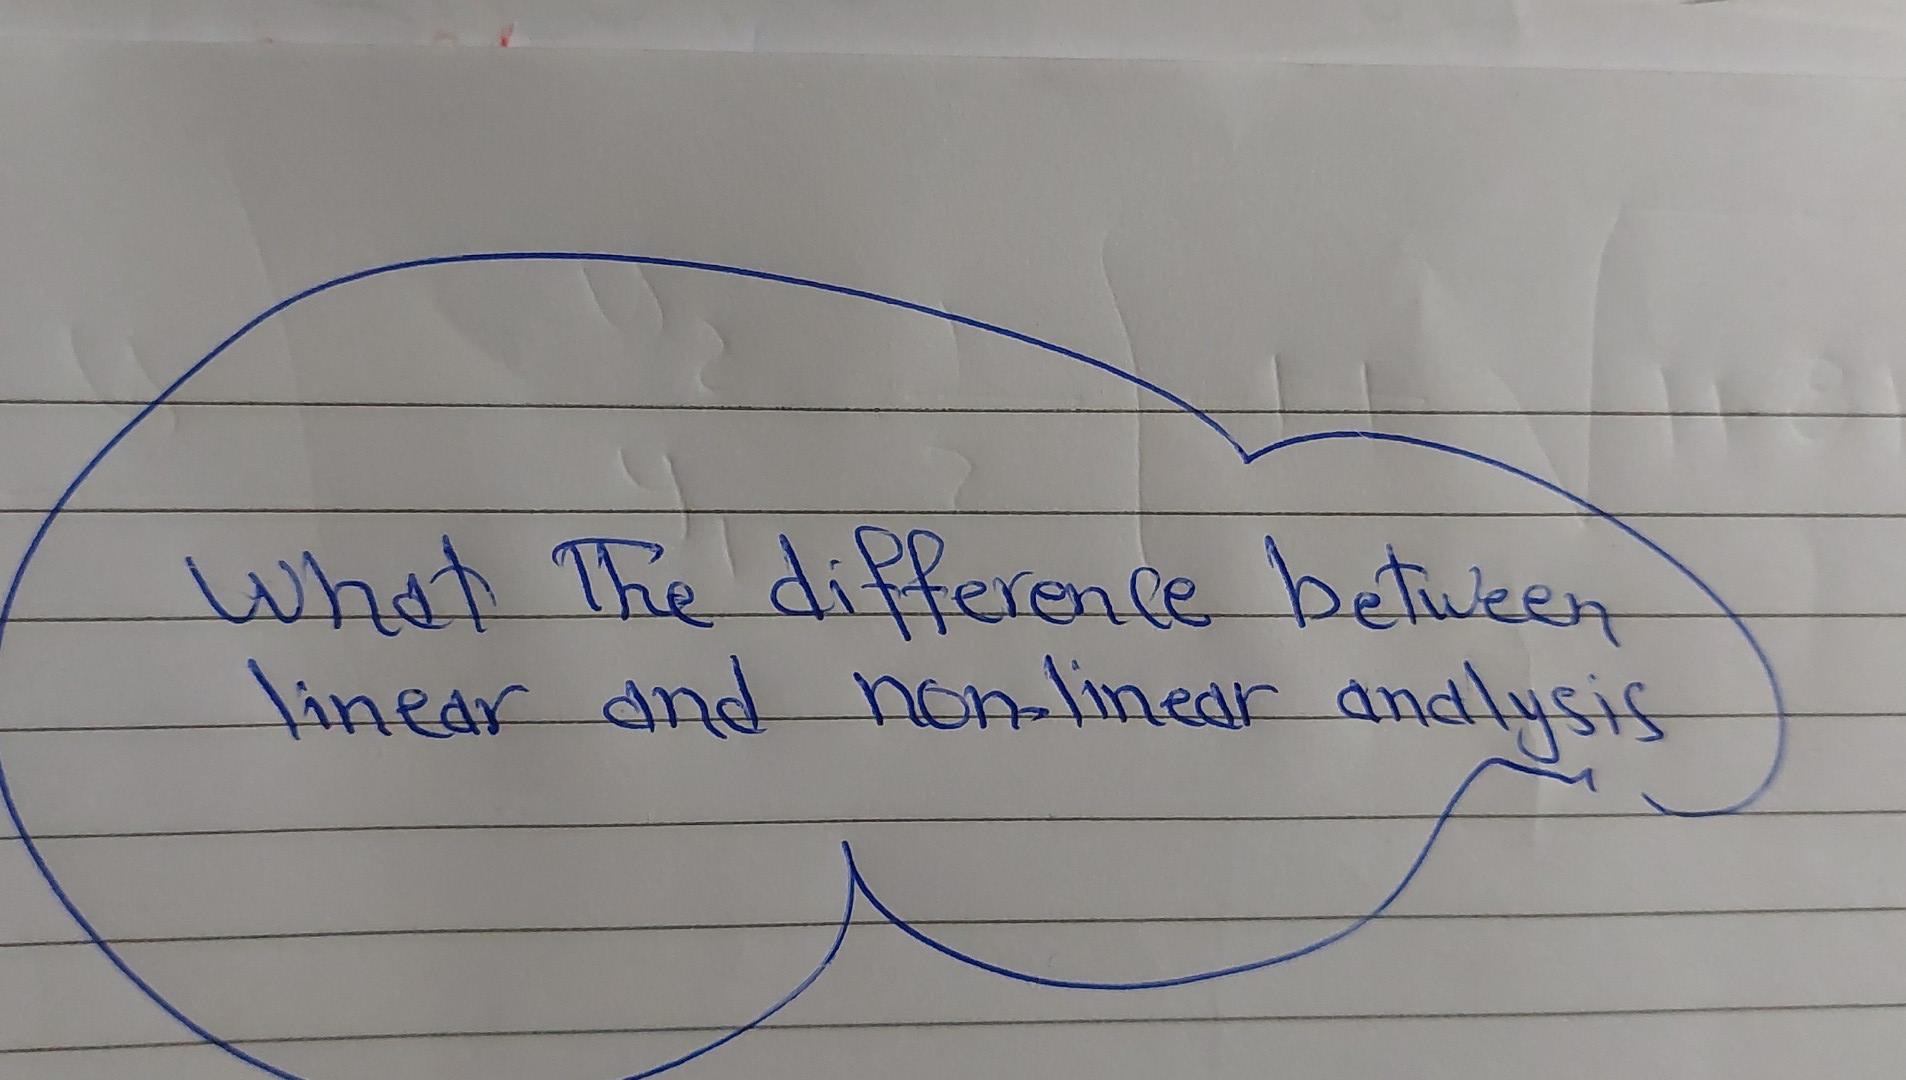 What The difference between
linear and non-linear analysis